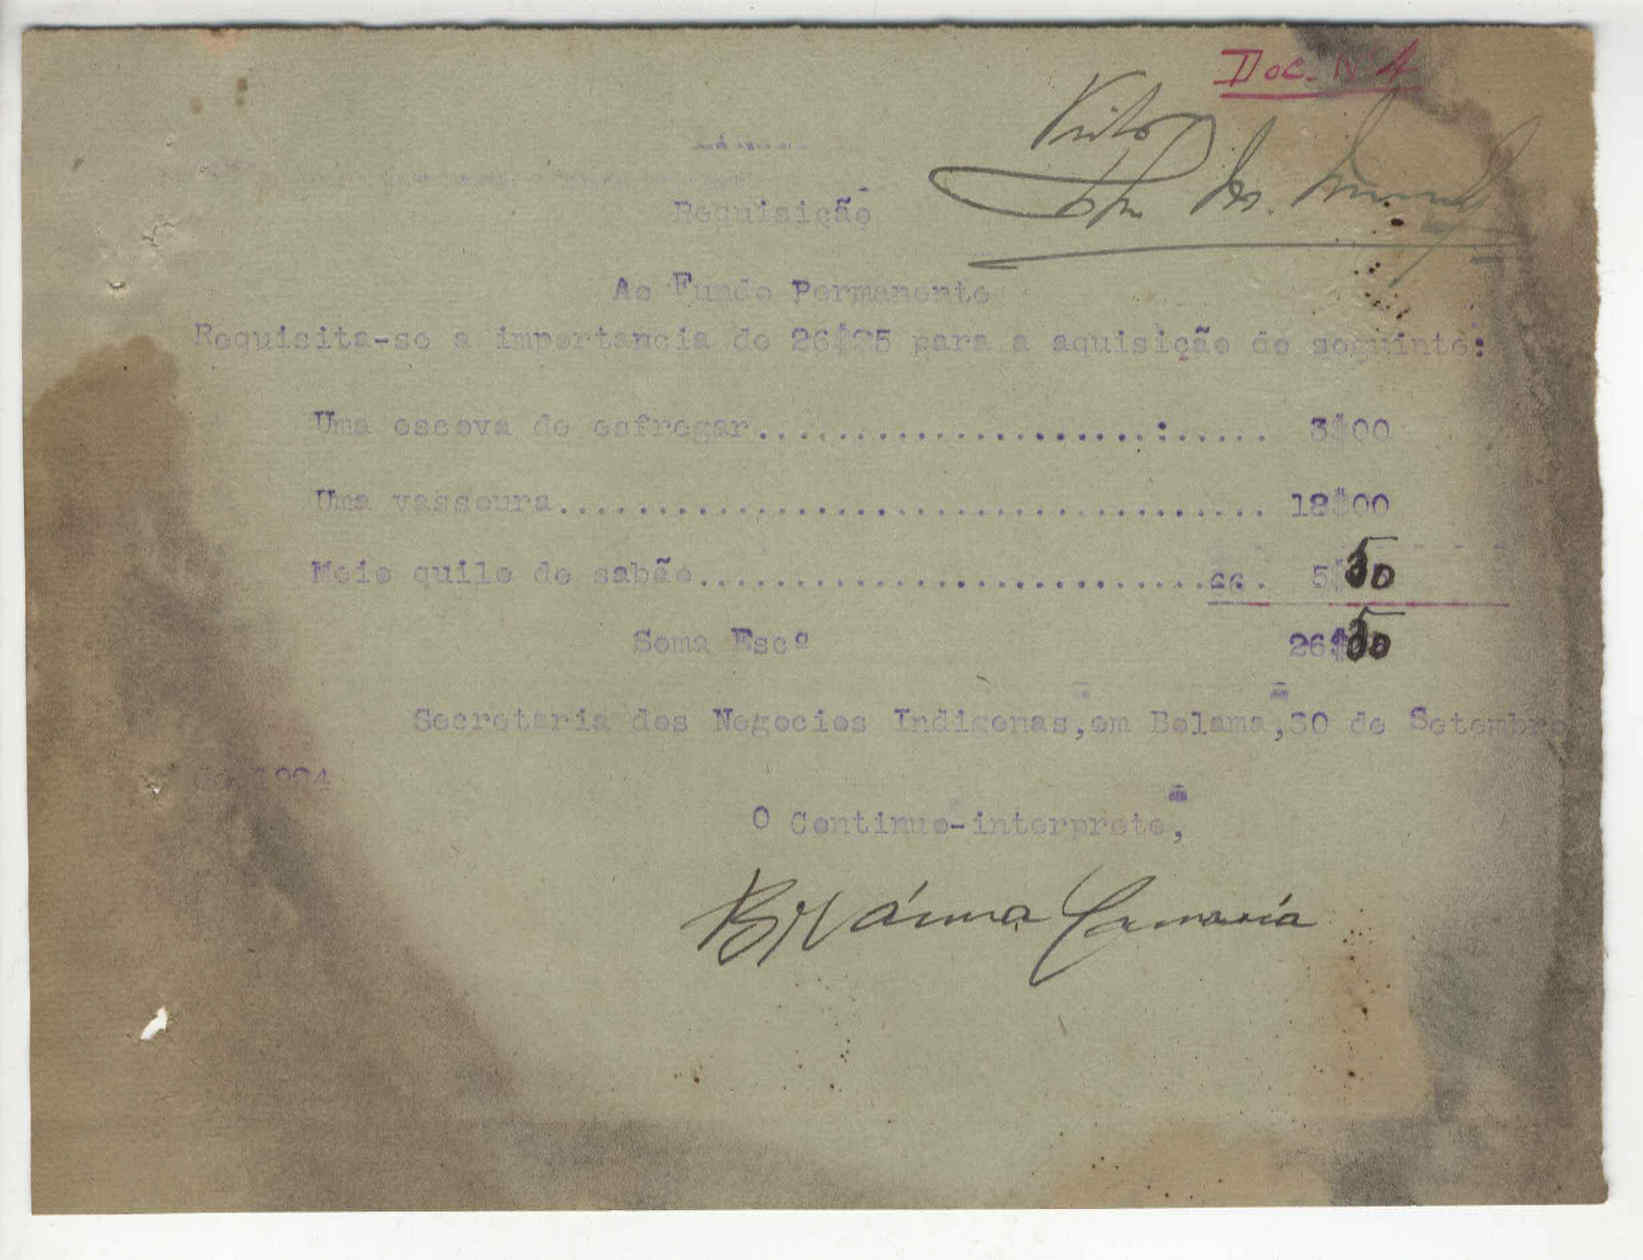 Doc. Nº 4
Visto
Requisição
Ao Fundo Permanente
Requisita-se a importancia de 26$25 para a aquisição do seguinte:
Uma escova de esfregar.......................:..... 3$00
Uma vassoura.................................... 18$00
Meio quilo de sabão............................. 5$50
Soma Escº 26$50
Secretaria dos Negocios Indigenas,em Bolama,30 de Setembro
de 1924
O Continuo-interprete,